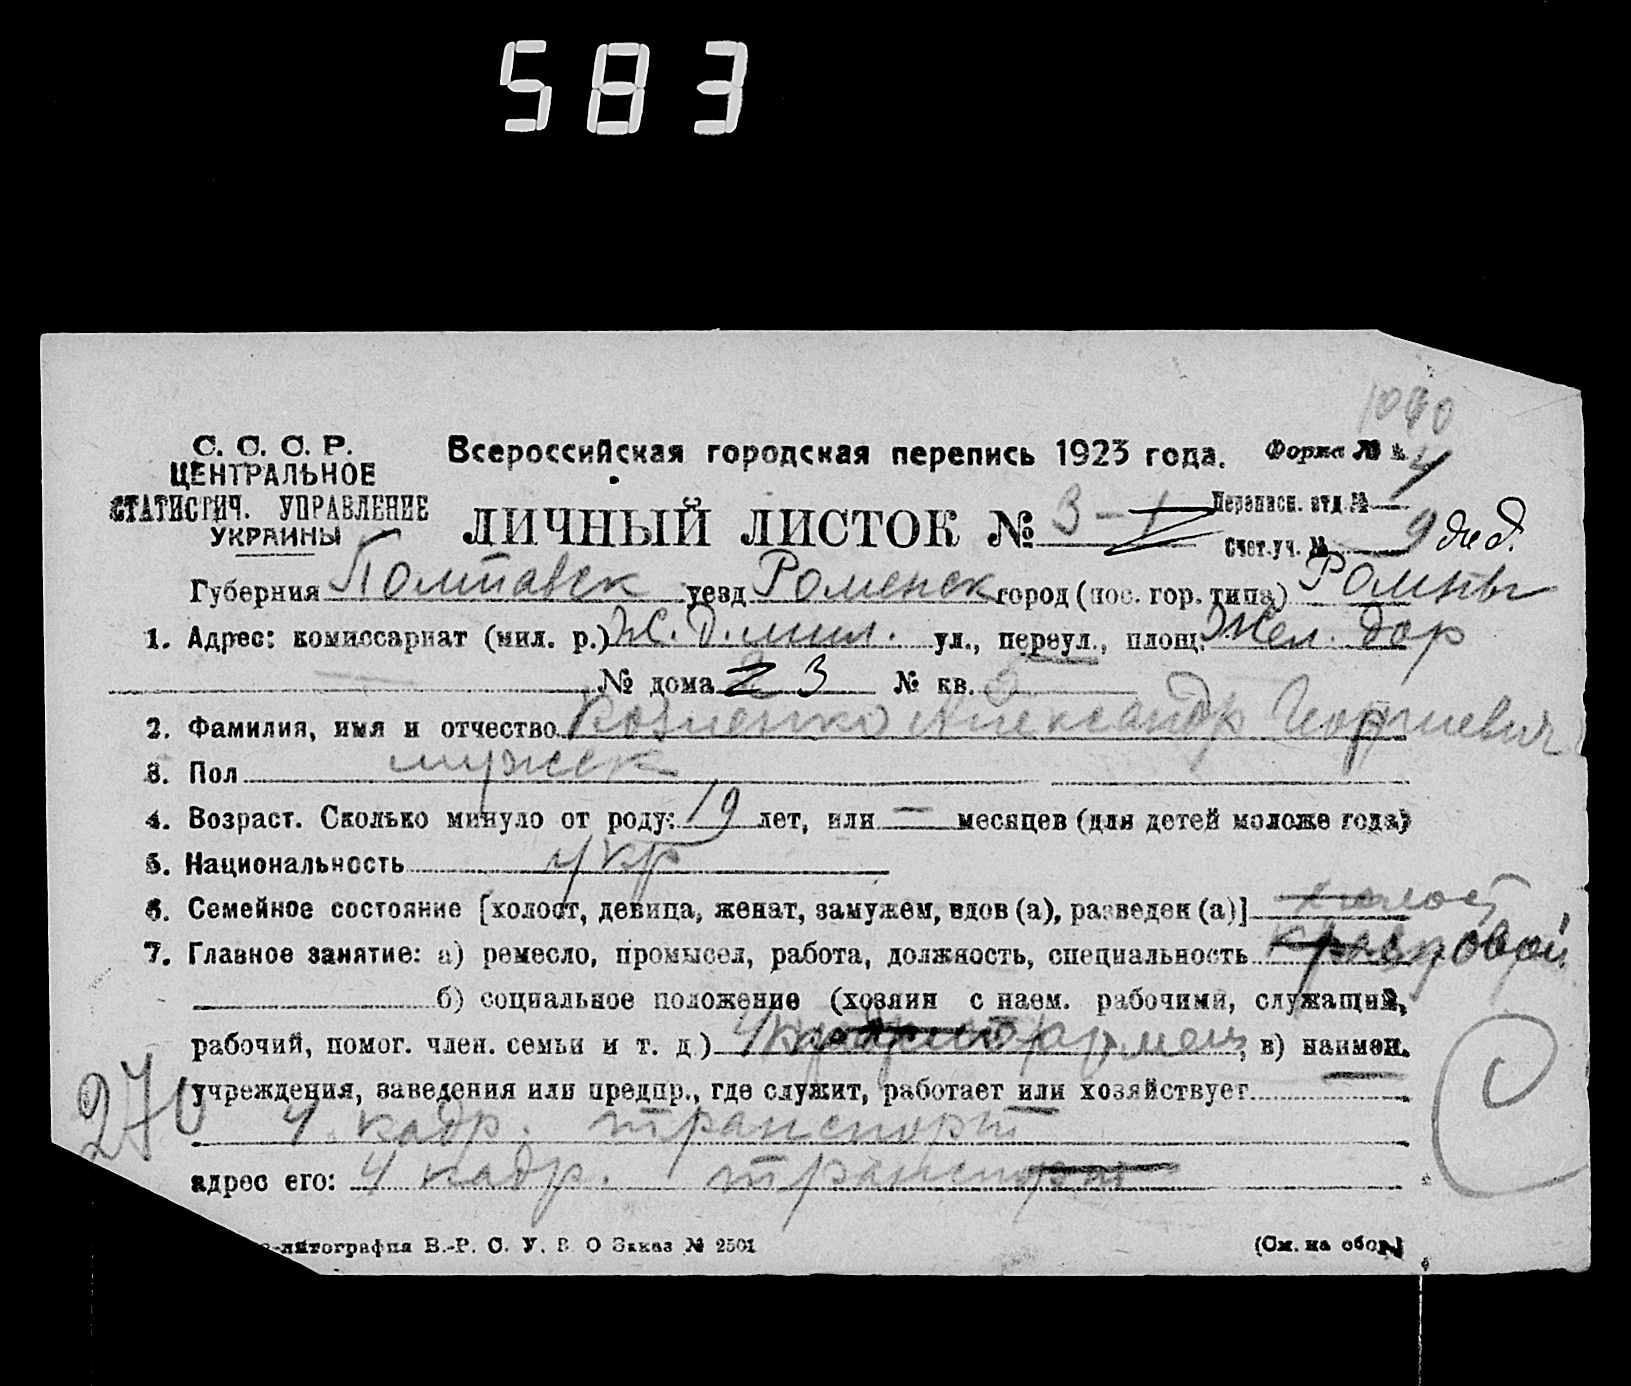 583
1090
С. С. С. Р. Всероссийская городская перепись 1923 года. Форма № 4
ЦЕНТРАЛЬНОЕ
СТАТИСТИЧ. УПРАВЛЕНИЕ
УКРАИНЫ
ЛИЧНЫЙ ЛИСТОК № 3-1 Переписн. отд №
Счет.уч. № 9
Губерния Полтавск уезд Роменск город (пос. гор. типа) Ромны
1. Адрес: комиссариат (мил. р.) Ж.Д. мил. ул., переул., площ: Жел. дор
№ дома 23 № кв.
2. Фамилия, имя и отчество Александр Георгиевич
3. Пол мужск
4. Возраст. Сколько минуло от роду: 19 лет, или — месяцев (для детей моложе года)
5. Национальность укр
6. Семейное состояние [холост, девица, женат, замужем, вдов (а), разведен (а)] холост
7. Главное занятие: а) ремесло, промысел, работа, должность, специальность
б) социальное положение (хозяин с наем. рабочими, служащий,
рабочий, помог. член. семьи и т. д.) , в) наимен.
учреждения, заведения или предпр., где служит, работает или хозяйствует
4. кадр. транспорт
адрес его: 4 кадр. транспорт
270
С
-литография В.-Р. С. У. В. О Заказ № 2501 (См. на обор.)